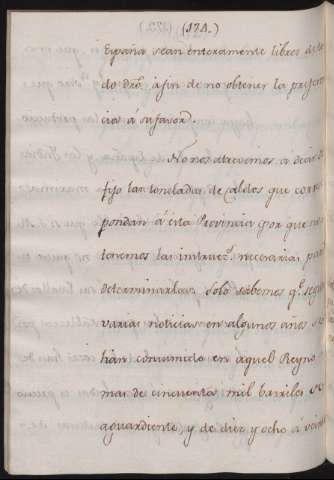 (174.)
España sean enteramente libres de to
do dro. á fin de no obtener la prefere
cia á su favor.
No nos atrevemos á decir de
fijo las toneladas de Caldos que corres
pondan á esta Provincia por que no
tenemos las instrucs. necesarias para
determinarlas. Solo sabemos qe. segun
varias noticias en algunos años se
han consumido en aquel Reyno
mas de cincuenta mil barriles de
aguardiente, y de diez y ocho á veinte